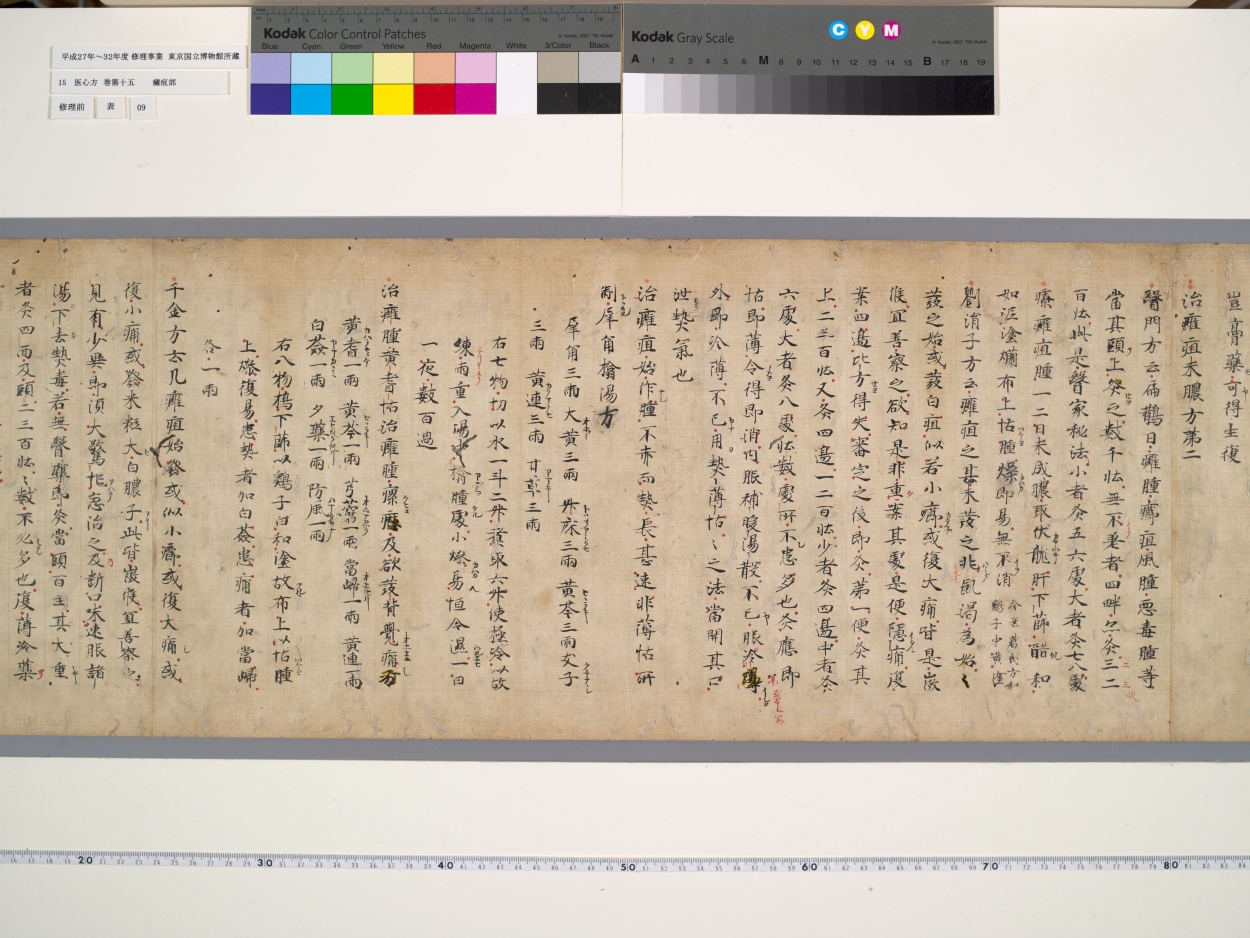 平成27年～32年度 修理事業 東京国立博物館所蔵
15 医心方 巻第十五 癰疽部
修理前 表 09
Kodak Color Control Patches
Blue Cyan Green Yellow Red Magenta White 3/Color Black
Kodak Gray Scale
C Y M
A 1 2 3 4 5 6 M 8 9 10 11 12 13 14 15 B 17 18 19
豈膏藥可得生復
治癰疽未膿方第二
醫門方云扁鵲曰癰腫癤疽風腫惡毒腫等
當其頭上灸之數千壯無不差者四畔亦灸三二
百壯此是醫家秘法小者灸五六處大者灸七八處
療癰疽腫一二日未成膿取伏龍肝下篩醋和
如泥塗爛布上怗腫燥即易無不消
劉涓子方云癰疽之甚未發之兆飢渴為始
發之始或發白疽似若小癤或復大痛皆是微
候宜善察之欲知是非重案其處是便隱痛復
案四邊比方得失審定之後即灸第一便灸其
上二三百壯又灸四邊一二百壯少者灸四邊中者灸
六處大者灸八處壯數處所不患多也灸應即
怗即薄令得即消內服補暖湯散不已服冷薄
外即冷薄不已用熱薄怗之法當開其口
泄熱氣也
治癰疽始作腫不赤而熱長甚速非薄怗所
制犀角搨湯方
犀角三兩 大黃三兩 升麻三兩 黃芩三兩 支子
三兩 黃連三兩 甘草三兩
右七物切以水一斗二升煮取六升使極冷以故
練兩重入湯中搨腫處小燥易恒令濕一日
一夜數百過
治癰腫黃耆怗治癰腫瘰癧及欲發背覺痛方
黃耆一兩 黃芩一兩 芎藭一兩 當歸一兩 黃連一兩
白蘞一兩 夕藥一兩 防風一兩
右八物搗下篩以鷄子白和塗故布上以怗腫
上燥復易患熱者加白蘞患痛者加當歸
各一兩
千金方云凡癰疽始發或似小癤或復大痛或
復小痛或發米粒大白膿子此皆微候宜善察之
見有少異即須大驚忙急治之及斷口味速服諸
湯下去熱毒若無醫藥即灸當頭百壯其大重
者灸四面及頭二三百壯壯數不必多也復薄冷藥
20 30 40 50 60 70 80